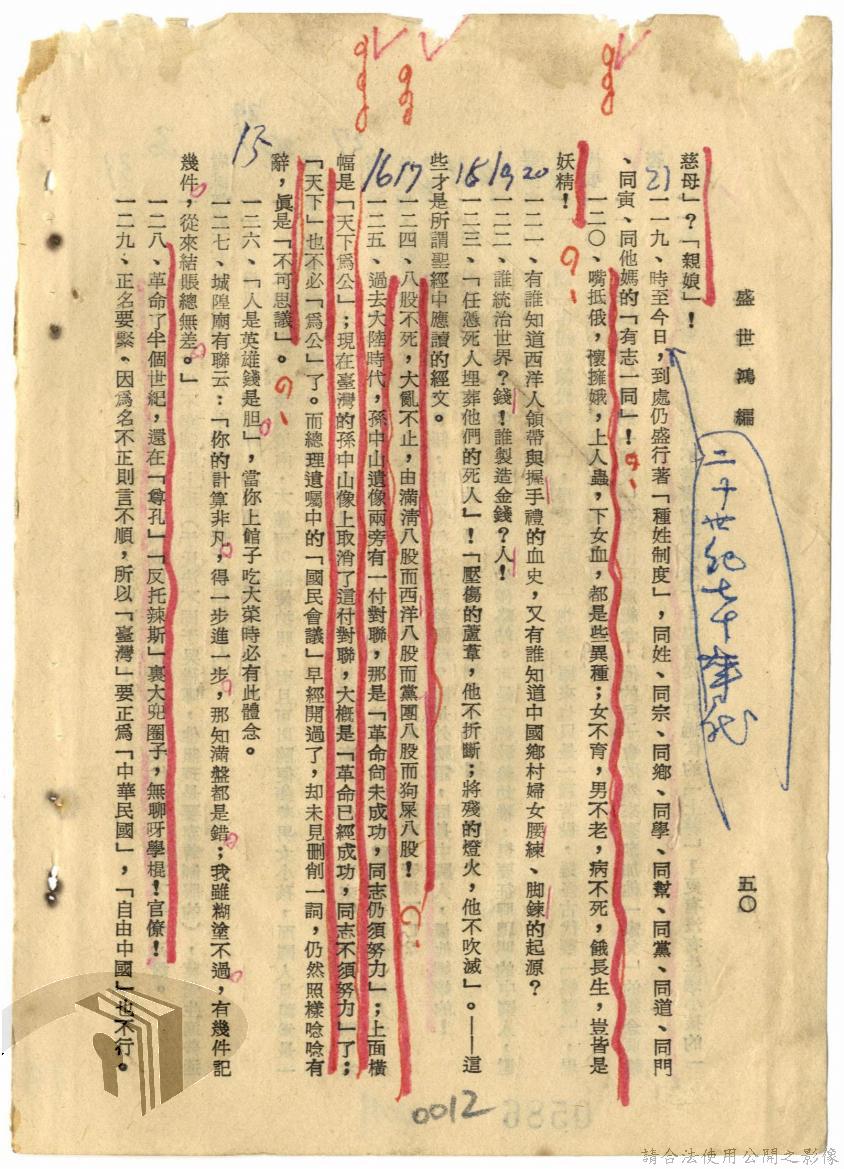 盛世鴻編
五〇
慈母」？「親娘」！
一一九、時至今日，到處仍盛行著「種姓制度」，同姓、同宗、同鄉、同學、同幫、同黨、同道、同門
、同寅、同他媽的「有志一同」！
一二〇、嘴抵俄，懷擁娥，上人蟲，下女血，都是些異種；女不育，男不老，病不死，餓長生，豈皆是
妖精！
一二一、有誰知道西洋人領帶與握手禮的血史，又有誰知道中國鄉村婦女腰練、脚鍊的起源？
一二二、誰統治世界？錢！誰製造金錢？人！
一二三、「任憑死人埋葬他們的死人」！「壓傷的蘆葦，他不折斷；將殘的燈火，他不吹滅」。——這
些才是所謂聖經中應讀的經文。
一二四、八股不死，大亂不止，由滿淸八股而西洋八股而黨團八股而狗屎八股！
一二五、過去大陸時代，孫中山遺像兩旁有一付對聯，那是「革命尙未成功，同志仍須努力」；上面橫
幅是「天下爲公」；現在臺灣的孫中山像上取消了這付對聯，大槪是「革命已經成功，同志不須努力」了；
「天下」也不必「爲公」了。而總理遺囑中的「國民會議」早經開過了，却未見刪削一詞，仍然照樣唸唸有
辭，眞是「不可思議」。
一二六、「人是英雄錢是胆」，當你上館子吃大菜時必有此體念。
一二七、城隍廟有聯云：「你的計算非凡，得一步進一步，那知滿盤都是錯；我雖糊塗不過，有幾件記
幾件，從來結賬總無差。」
一二八、革命了半個世紀，還在「尊孔」「反托辣斯」裏大兜圈子，無聊呀學棍！官僚！
一二九、正名要緊、因爲名不正則言不順，所以「臺灣」要正爲「中華民國」，「自由中國」也不行。
二十世紀七十年代
21
20
19
18
17
16
15
0012
請合法使用公開之影像